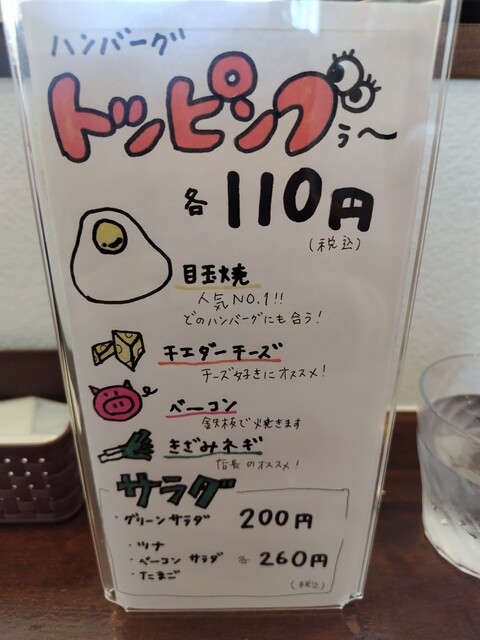 ハンバーグ
トッピングぅ〜
各110円
(税込)
目玉焼
人気NO.1!!
どのハンバーグにも合う!
チェダーチーズ
チーズ好きにオススメ!
ベーコン
鉄板で焼きます
きざみネギ
店長のオススメ!
サラダ
・グリーンサラダ 200円
・ツナ
・ベーコン サラダ 各260円
・たまご
(税込)